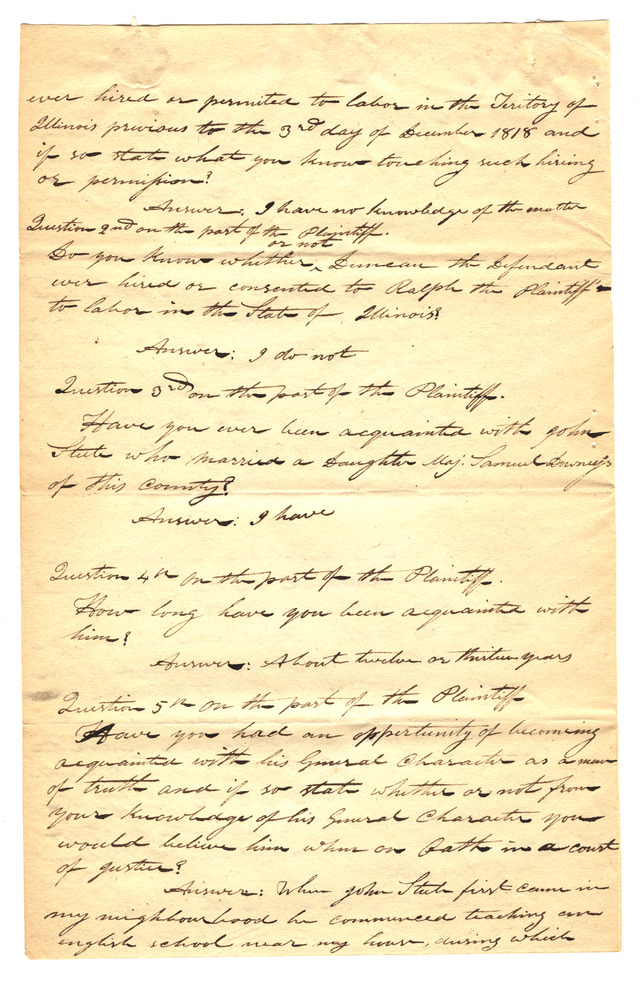 ever hired or permited to labor in the Teritory of
Illinois previous to the 3rd day of December 1818 and
if so state what you know touching such hiring
or permission?
Answer: I have no knowledge of the matter
Question 2nd on the part of the Plaintiff.
or not
Do you know whether ^ Duncan the Defendant
ever hired or consented to Ralph the Plaintiff
to labor in the State of Illinois?
Answer: I do not
Question 3rd on the part of the Plaintiff.
Have you ever been acquainted with John
Stule who married a Daughter Maj. Samuel Downey's
of this County?
Answer: I have
Question 4th on the part of the Plaintiff.
How long have you been acquainted with
him?
Answer: About twelve or thirteen years
Question 5th on the part of the Plaintiff
Have you had an opportunity of becoming
acquainted with his General Character as a man
of truth and if so state whether or not from
your knowledge of his General Character you
would believe him when on Oath in a court
of Justice?
Answer: When John Stule first came in
my neighbourhood he commenced teaching an
english school near my house, during which